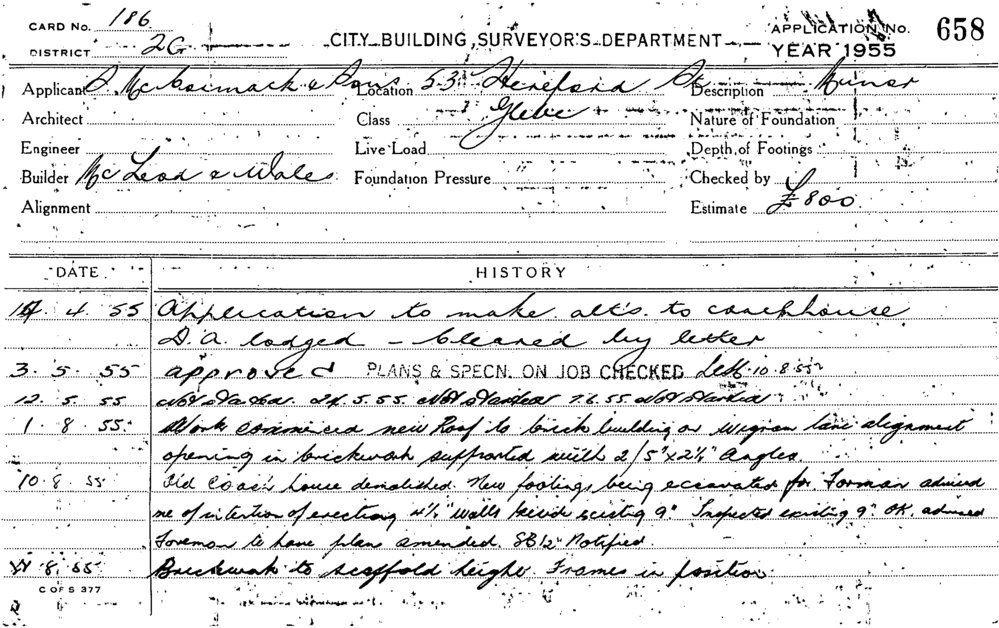 CARD No. 186
DISTRICT 2G
CITY BUILDING SURVEYOR'S DEPARTMENT
APPLICATION No. 658
YEAR 1955
Applicant McCormack & Sons Location 53 Hereford St Description Minor
Architect Class Glebe Nature of Foundation
Engineer Live Load Depth of Footings
Builder McLeod & Wales Foundation Pressure Checked by
Alignment Estimate £800
DATE HISTORY
4. 55 Application to make alt's. to coachhouse
D.A. lodged - Cleared by letter
3. 5. 55 approved PLANS & SPECN. ON JOB CHECKED 10.8.55
12. 5. 55 Not Started. 24.5.55 Not Started 7.6.55 Not Started
1. 8. 55. Work commenced new Roof to brick building on Wigram lane alignment
opening in brickwork supported with 2/5"x2½" Angles.
10. 8. 55 Old Coach house demolished. New footings being excavated for. Forman advised
me of intention of erecting 4½" walls existing 9" Inspected existing 9" OK. advised
Foreman to have plan amended. Notified.
8. 55. Brickwork to scaffold height. Frames in position.
C OF S 377